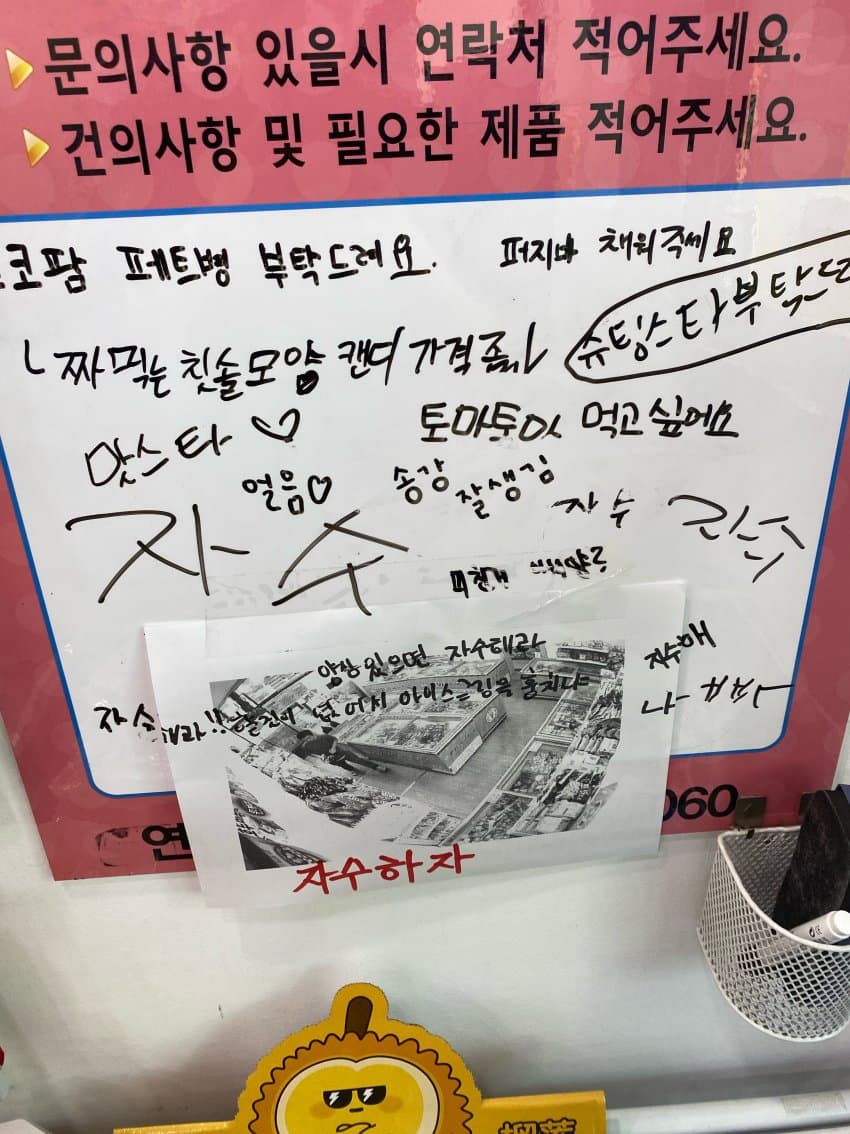 문의사항 있을시 연락처 적어주세요.
건의사항 및 필요한 제품 적어주세요.
코팜 페트병 부탁드려요.
퍼지바 채워주세요
짜먹는 칫솔모양 캔디 가격좀
슈팅스타부탁드
맛스타♡
토마토마 먹고싶어요
얼음♡
송강
잘생김
자수
자수
미친개
양심있으면 자수해라
자수
해라!!
어서 아이스크림을 훔치냐
자수해
나빠
자수하자
연
060